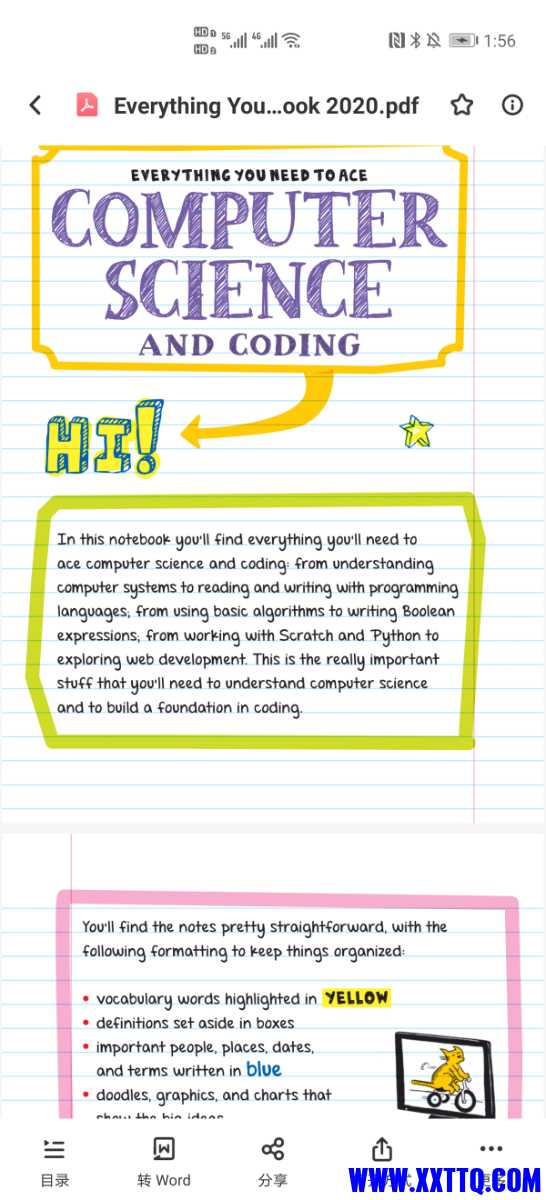 HD 1 5G 4G 1:56
HD 2
Everything You...ook 2020.pdf
EVERYTHING YOU NEED TO ACE
COMPUTER
SCIENCE
AND CODING
HI!
In this notebook you'll find everything you'll need to
ace computer science and coding: from understanding
computer systems to reading and writing with programming
languages; from using basic algorithms to writing Boolean
expressions; from working with Scratch and Python to
exploring web development. This is the really important
stuff that you'll need to understand computer science
and to build a foundation in coding.
You'll find the notes pretty straightforward, with the
following formatting to keep things organized:
• vocabulary words highlighted in YELLOW
• definitions set aside in boxes
• important people, places, dates,
and terms written in blue
• doodles, graphics, and charts that
show the big ideas
目录 转 Word 分享
WWW.XXTTQ.COM